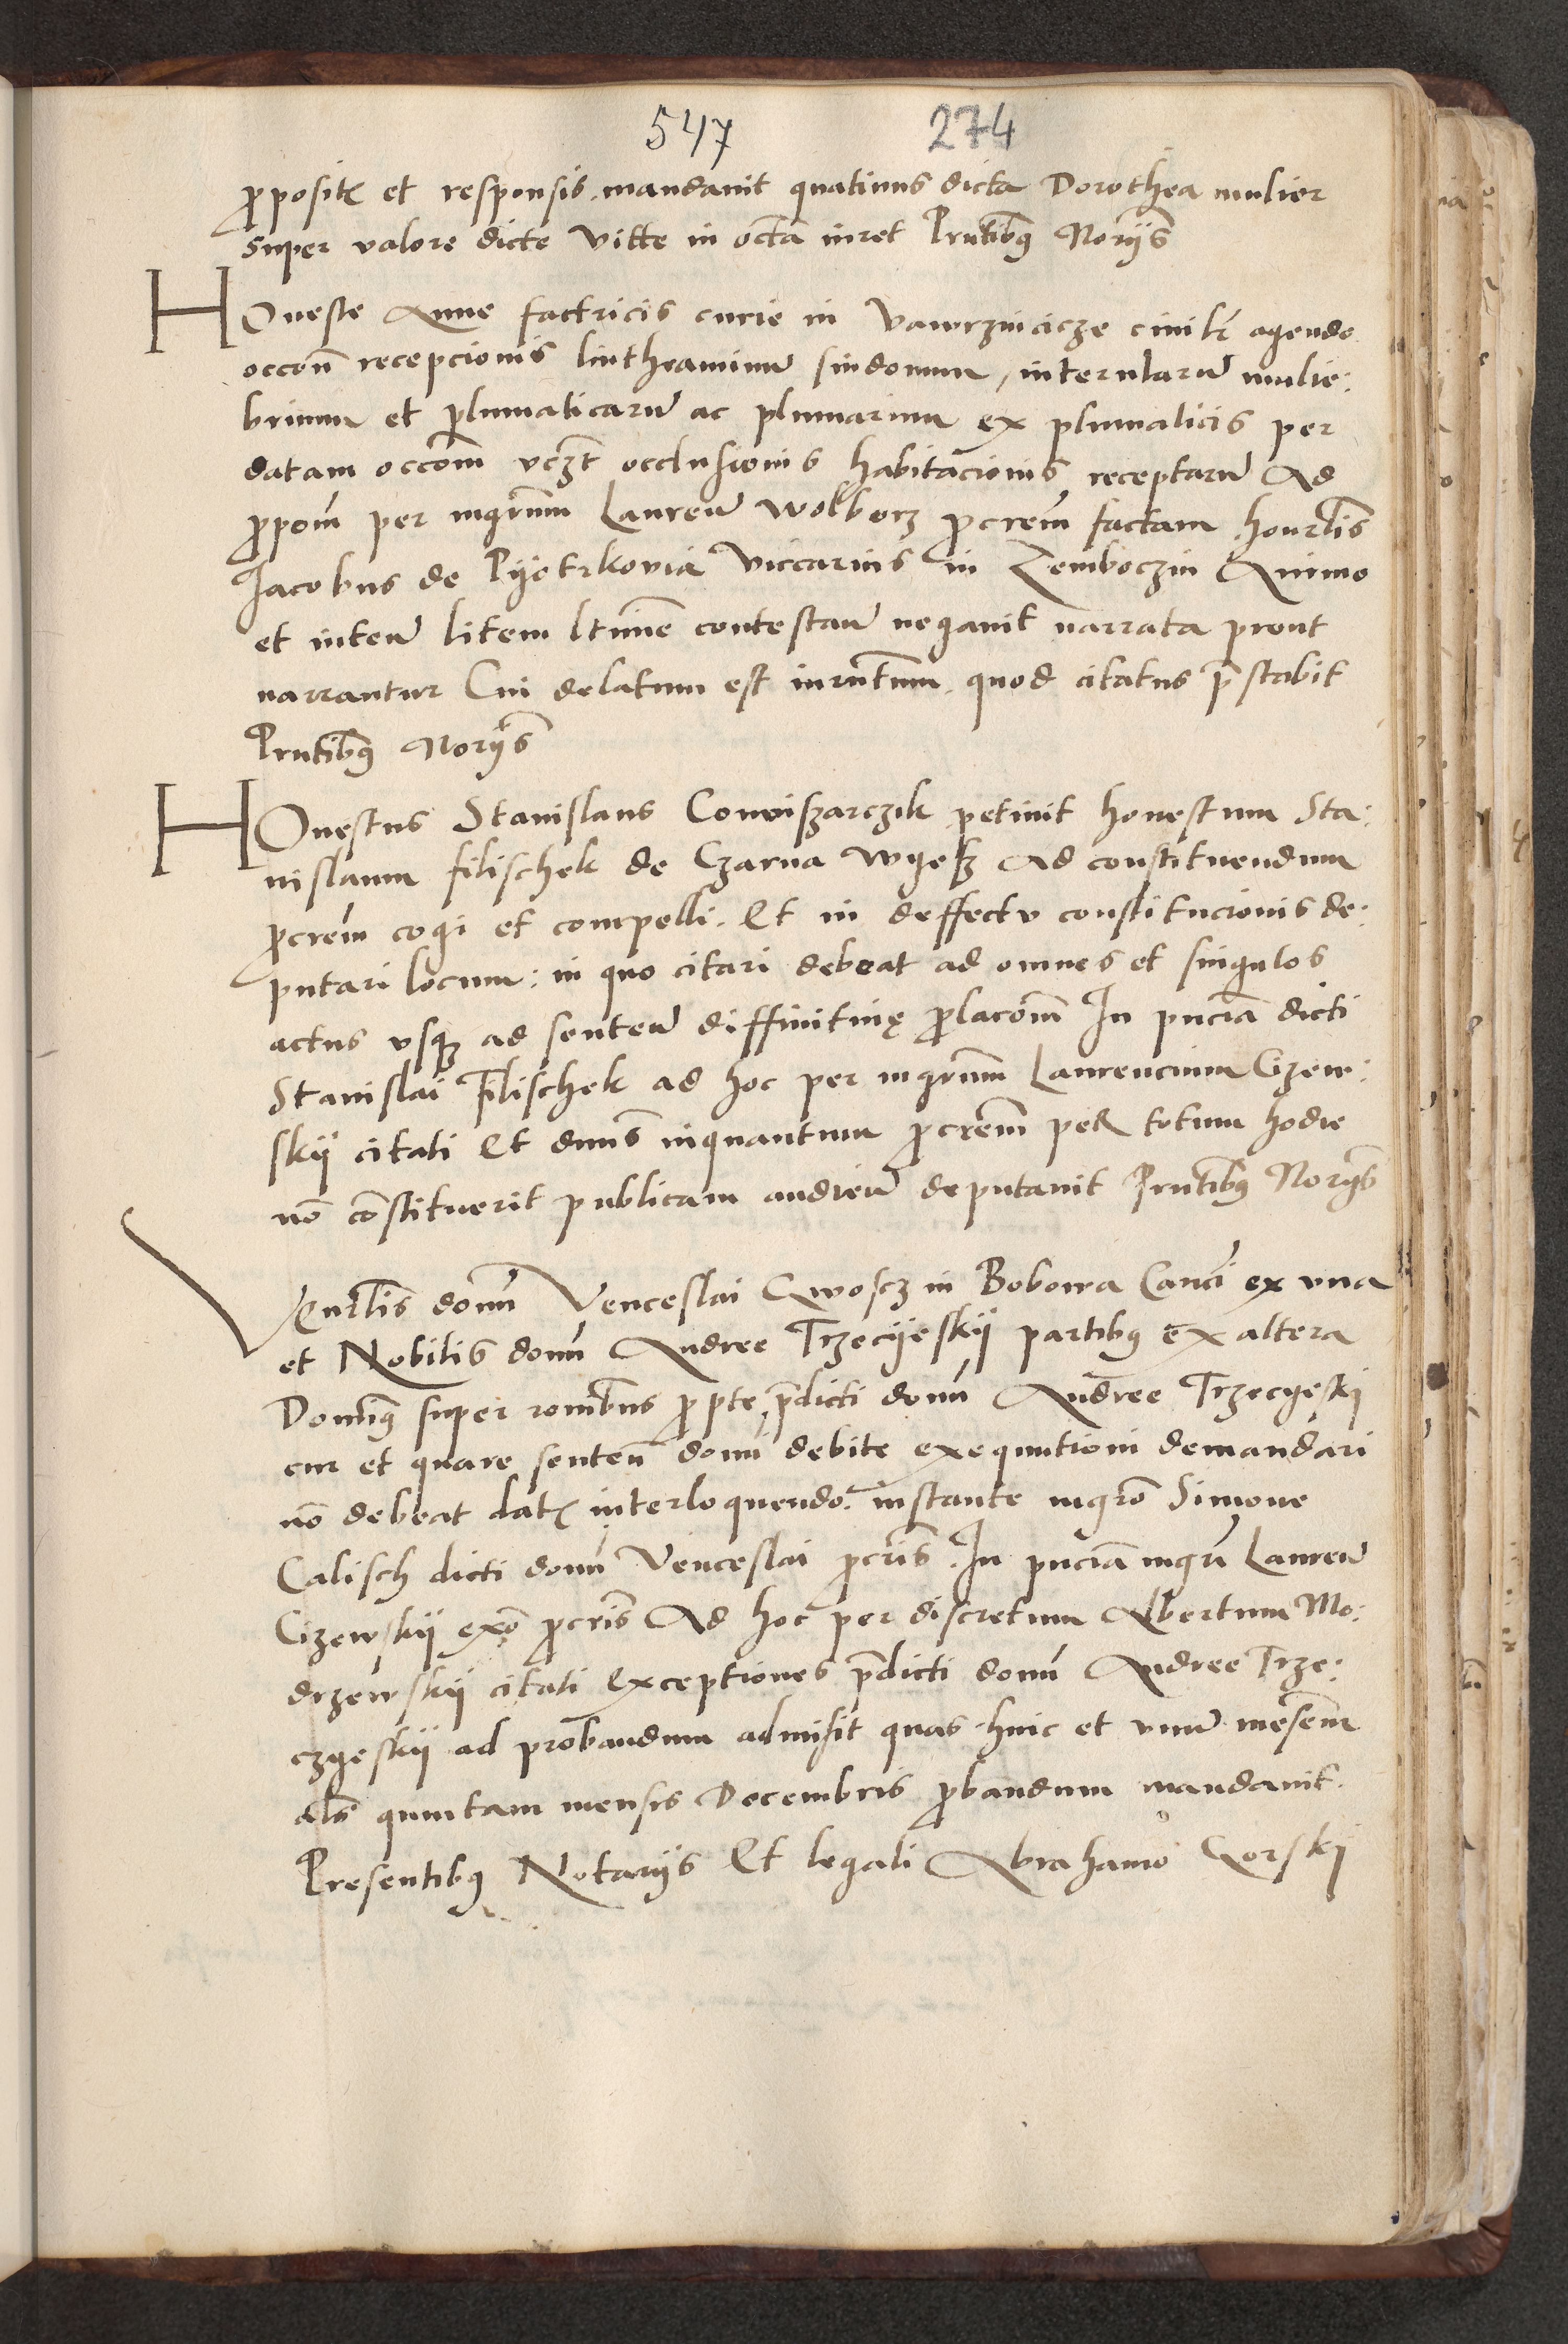 547 274
propositis et responsis mandauit quatinus dicta Dorothea mulier
super valore dicte Vitte in octa iuret Prntibus Norijs
Honeste Anne factricis curie in Vawrzinicicze ciuilr agende
occone recepcionis lintheaminum sindonum, interularum mulie:
brium et plumaticarum ac plumarum ex plumaticis per
datam occoem vczt occlusionis habitacionis receptarum Ad
propoem per mgrum Lauren Wolborz procrem factam honrlis
Jacobus de Pyetrkovia Viccarius in Zemboczin Animo
et inten litem ltime contestan negauit narrata prout
narrantur Cui delatum est iurntum quod citatus prestabit
Prntibus Norijs
Honestus Stanislaus Conviszarczik petiuit honestum Sta:
nislaum filischek de Czarna Wyesz Ad constituendum
procrem cogi et compelli. Et in deffectu constitucionis de:
putari locum: in quo citari debeat ad omnes et singulos
actus vsque ad senten diffinitiuę prolacoem In pnciam dicti
Stanislai Filischek ad hoc per mgrum Laurencium Cizew:
skij citati Et dnus inquantum procrem per totum hodie
non constituerit publicam audien deputauit Prntibus Norijs
Venrlis domi Venceslai Gwoscz in Bobowa Canci ex vna
et Nobilis domi Andree Trzecijeskij partibus ex altera
Dominus super ronibus pro pte predicti domi Andree Trzecyeski
cur et quare senten domi debite exequutioni demandari
non debeat datis interloquendo. instante mgro Simone
Calisch dicti domi Venceslai procris. In pnciam mgri Lauren
Cizewskij exo procris Ad hoc per discretum Albertum Mo:
drzewskij citati Exceptiones predicti domi Andree Trze:
czyeskij ad probandum admisit quas hinc et vnum mensem
als quintam mensis Decembris probandum mandauit.
Presentibus Notarijs Et legali Abrahamo Gorskij